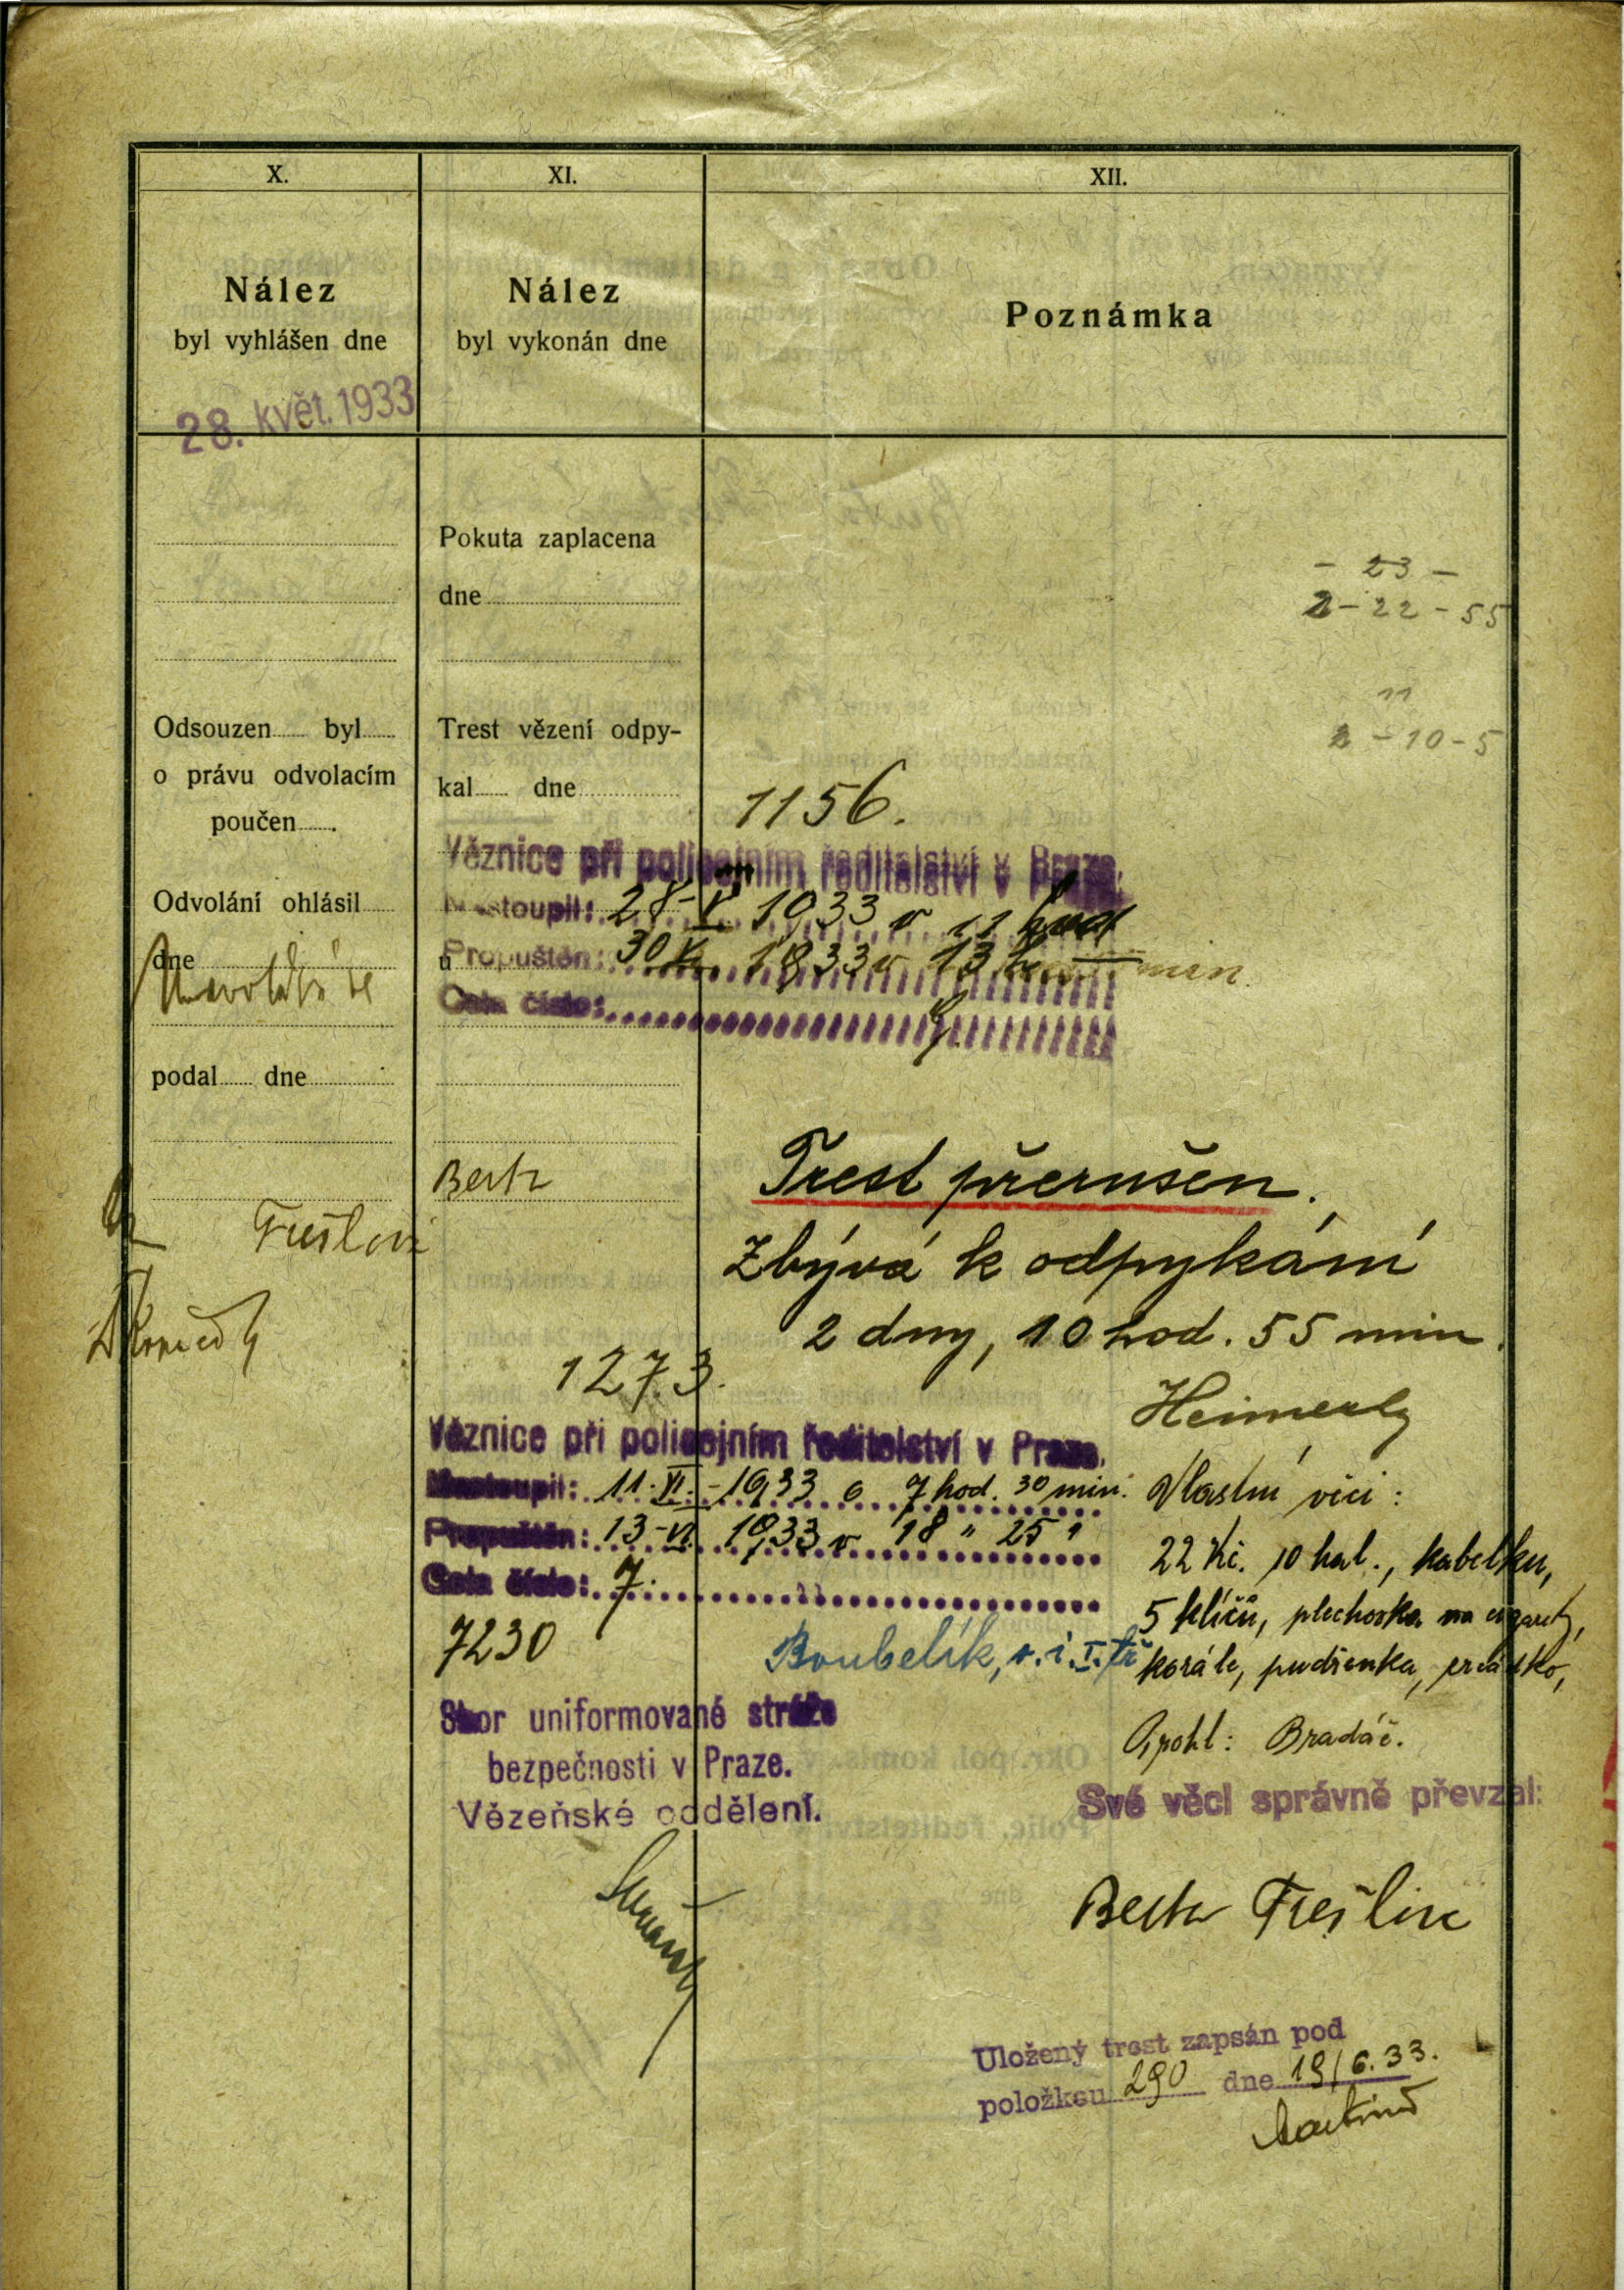 X.
XI.
XII.
Nález
byl vyhlášen dne
28. květ. 1933
Nález
byl vykonán dne
Poznámka
Pokuta zaplacena
dne
- 23 -
2 - 22 - 55
11
2 - 10 - 5
Odsouzen byl
o právu odvolacím
poučen .
Odvolání ohlásil
dne
podal dne
Trest vězení odpy-
kal dne
1156.
Věznice při policejním ředitelství v Praze.
Nastoupil: 28-V. 1933 v 11 hod
u
Propuštěn: 30 V. 1933 v 13 min.
Cela číslo:
Berta
Trest přerušen.
Zbývá k odpykání
2 dny, 10 hod. 55 min.
1273.
Věznice při policejním ředitelství v Praze.
Nastoupil: 11. VI. - 1933 o 7 hod. 30 min.
Propuštěn: 13-VI. 1933 v 18 " 25 "
Cela číslo: 7.
7230
Boubelík, v. i. I. tř
Vlastní věci:
22 Kč. 10 hal., kabelku,
5 klíčů, plechovka na cigarety,
korále, pudřenka, zrcátko,
Prohl: Bradáč.
Své věci správně převzal:
Sbor uniformované stráže
bezpečnosti v Praze.
Vězeňské oddělení.
Berta
Uložený trest zapsán pod
položkou 290 dne 19/6. 33.